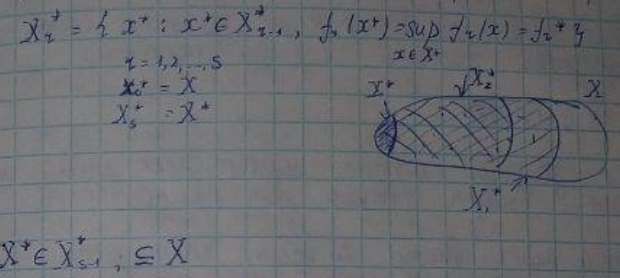 X_r^* = { x^* : x^* ∈ X_{r-1}^*, f_r(x^*) = sup f_r(x) = f_r^* }
x ∈ X^*
r = 1,2,...,S
X_0^* = X
X_s^* = X^*
X^* X_2^* X
X_1^*
X^* ∈ X_{s-1}^*, ⊆ X